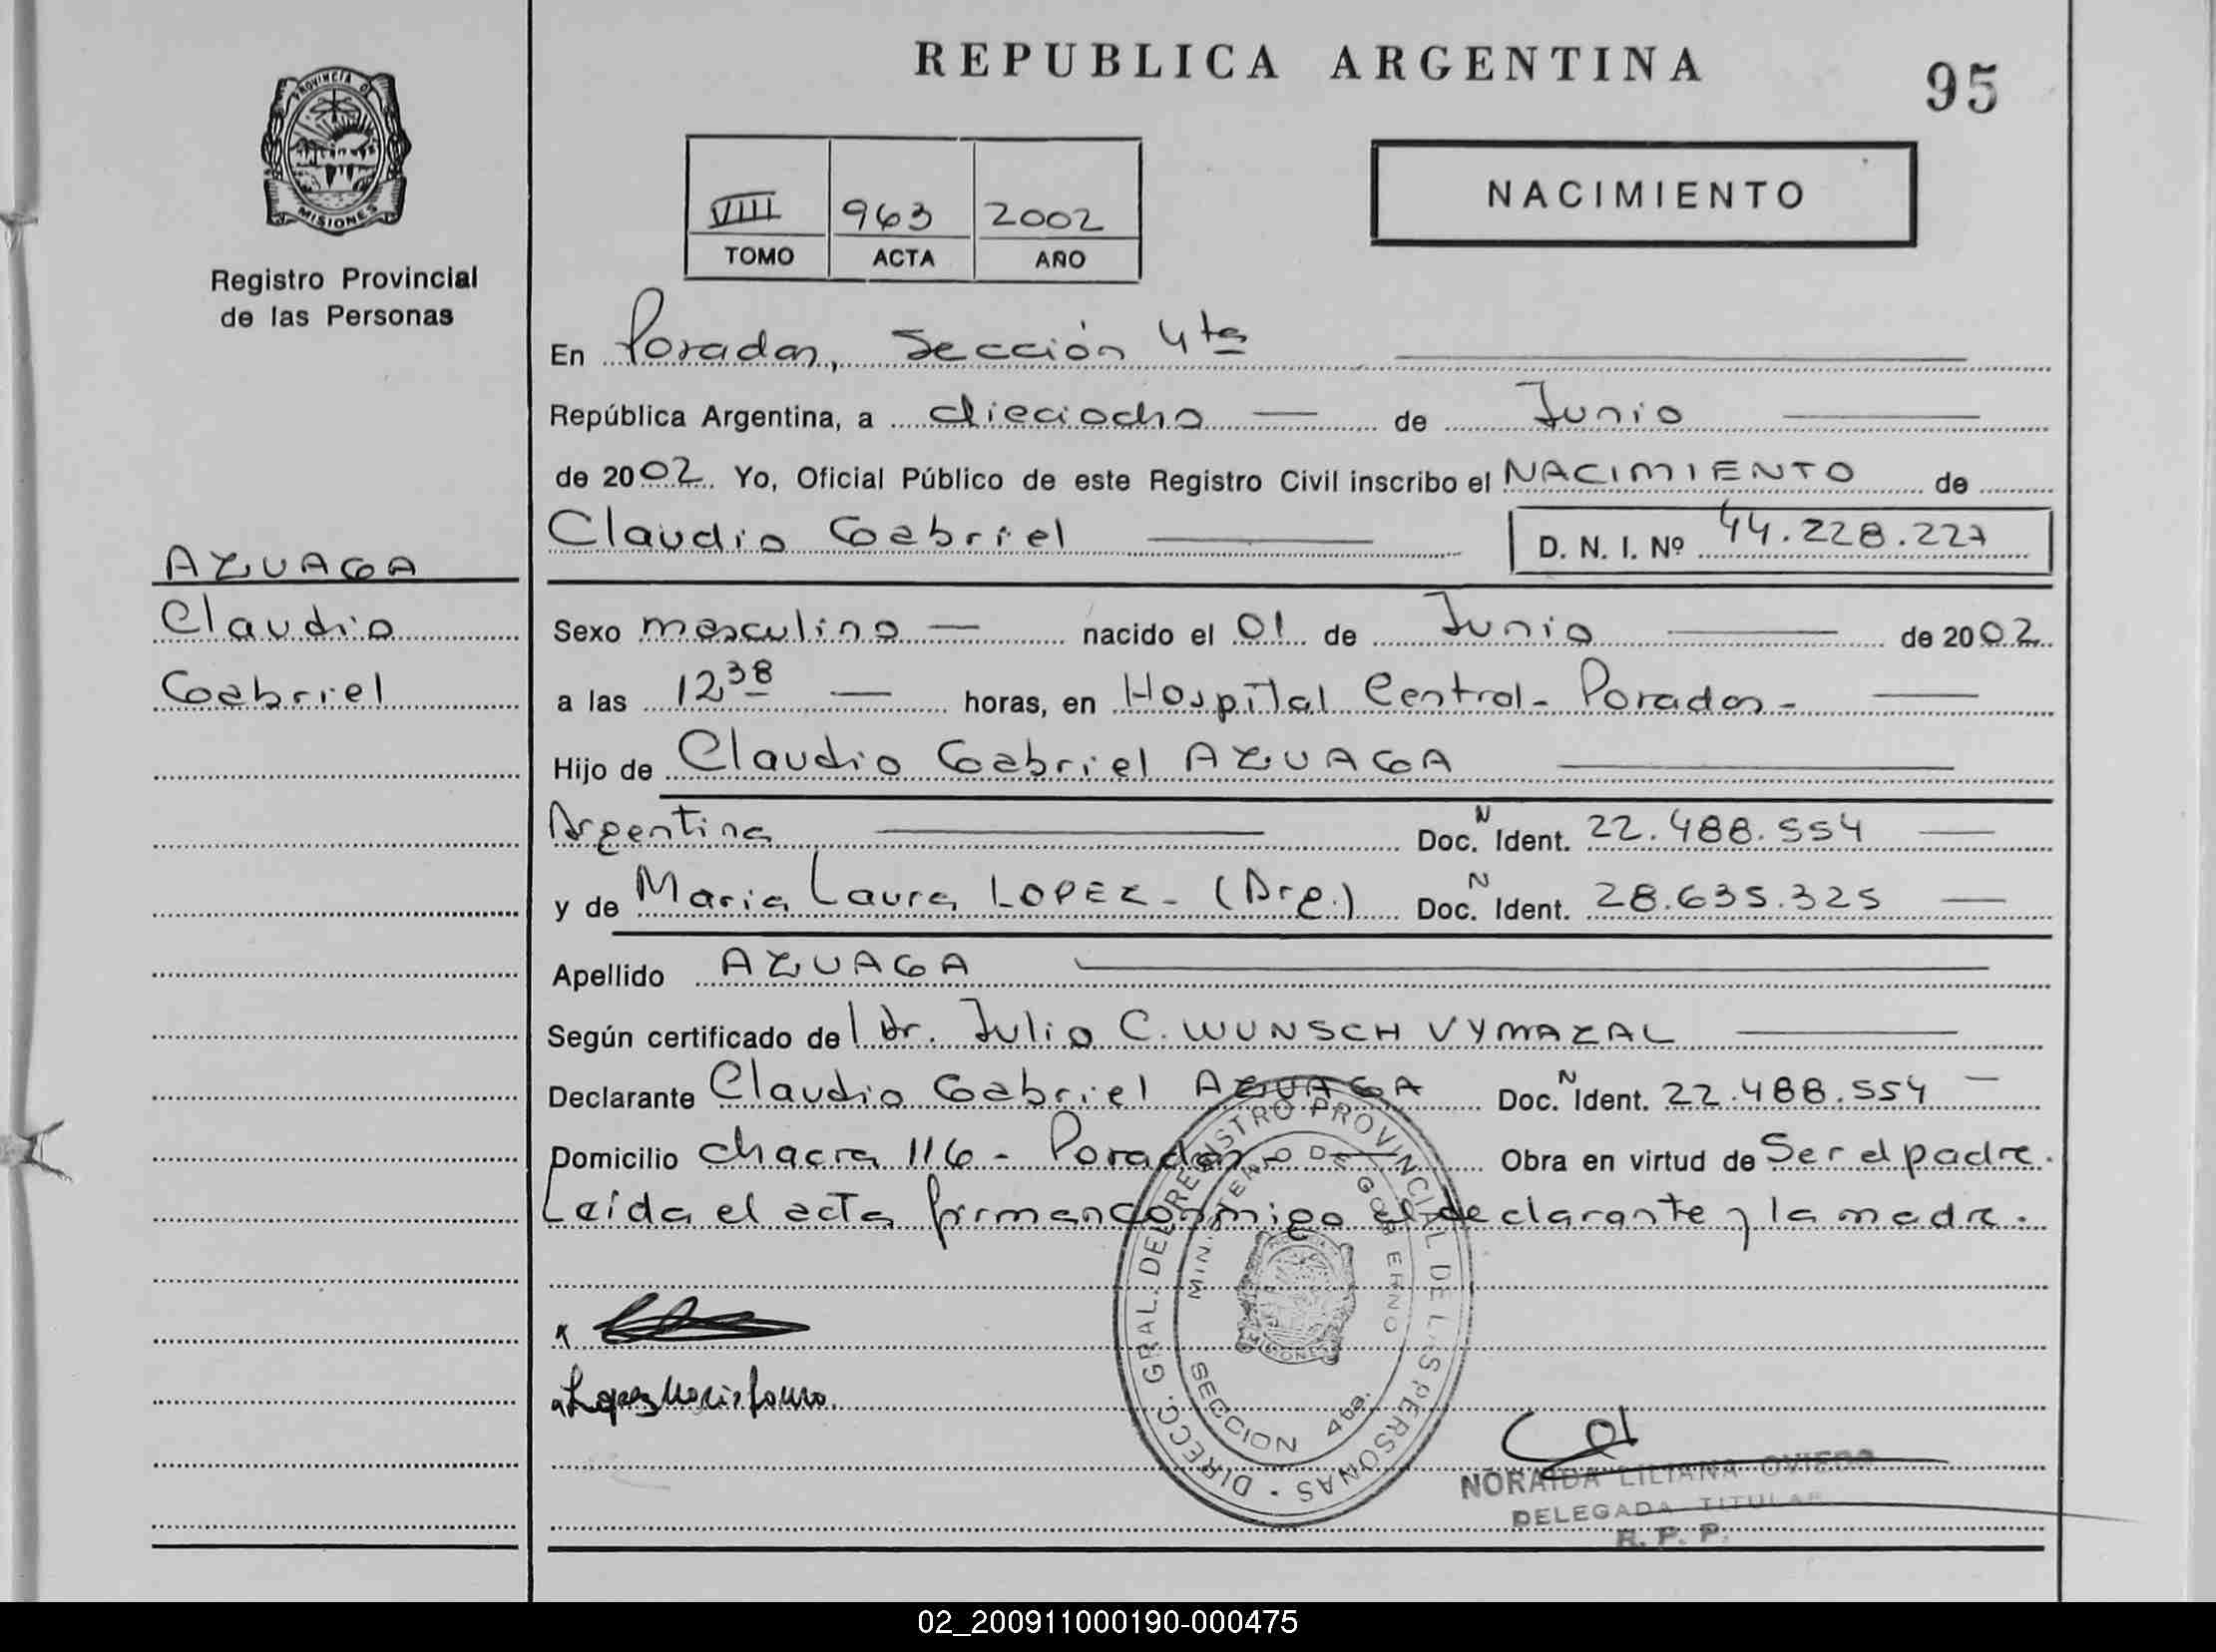 REPUBLICA ARGENTINA
95
PROVINCIA DE
MISIONES
Registro Provincial
de las Personas
VIII 963 2002
TOMO ACTA AÑO
NACIMIENTO
En Posadas, Sección 4ta
República Argentina, a dieciocho de Junio
de 2002. Yo, Oficial Público de este Registro Civil inscribo el NACIMIENTO de
Claudio Gabriel D. N. I. Nº 44.228.227
AZUAGA
Claudio
Gabriel
Sexo masculino nacido el 01 de Junio de 2002
a las 12 38 horas, en Hospital Central - Posadas -
Hijo de Claudio Gabriel AZUAGA
Argentina Doc. N Ident. 22.488.554
y de Maria Laura LOPEZ - (Arg.) Doc. N Ident. 28.635.325
Apellido AZUAGA
Según certificado de l Dr. Julio C. WUNSCH VYMAZAL
Declarante Claudio Gabriel AZUAGA Doc. N Ident. 22.488.554
Domicilio chacra 116 - Posadas - Obra en virtud de Ser el padre.
Leída el acta firman conmigo el declarante y la madre.
DIRECC. GRAL. DEL REGISTRO PROVINCIAL DE LAS PERSONAS
MINISTERIO DE GOBIERNO
SECCION 4ta.
Lopez Maria Laura
NORAIDA LILIANA OVIEDO
DELEGADA TITULAR
R. P. P.
02_200911000190-000475